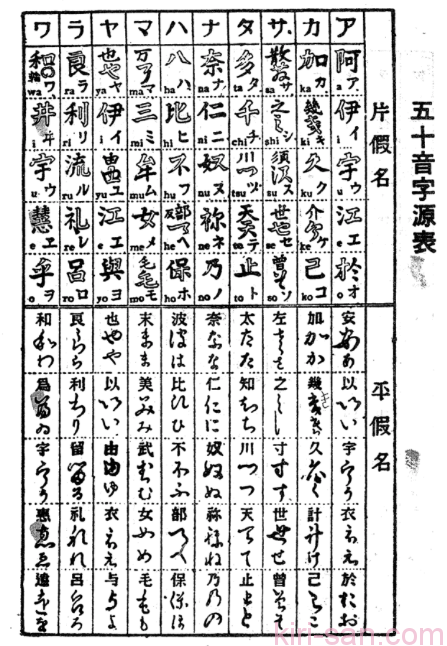 五十音字源表
片假名
平假名
ア カ サ タ ナ ハ マ ヤ ラ ワ
阿 ア a 伊 イ i 宇 ウ u 江 エ e 於 オ o
加 カ ka 幾 キ ki 久 ク ku 介 ケ ke 己 コ ko
散 サ sa 之 シ shi 須 ス su 世 セ se 曽 ソ so
多 タ ta 千 チ chi 川 ツ tsu 天 テ te 止 ト to
奈 ナ na 仁 ニ ni 奴 ヌ nu 祢 ネ ne 乃 ノ no
八 ハ ha 比 ヒ hi 不 フ hu 部 ヘ he 保 ホ ho
万 マ ma 三 ミ mi 牟 ム mu 女 メ me 毛 モ mo
也 ヤ ya 伊 イ i 由 ユ yu 江 エ e 與 ヨ yo
良 ラ ra 利 リ ri 流 ル ru 礼 レ re 呂 ロ ro
和 ワ wa 井 ヰ i 宇 ウ u 慧 ヱ e 乎 ヲ o
安 あ 以 い 宇 う 衣 え 於 お
加 か 幾 き 久 く 計 け 己 こ
左 さ 之 し 寸 す 世 せ 曽 そ
太 た 知 ち 川 つ 天 て 止 と
奈 な 仁 に 奴 ぬ 祢 ね 乃 の
波 は 比 ひ 不 ふ 部 へ 保 ほ
末 ま 美 み 武 む 女 め 毛 も
也 や 以 い 由 ゆ 衣 え 与 よ
良 ら 利 り 留 る 礼 れ 呂 ろ
和 わ 爲 ゐ 宇 う 惠 ゑ 遠 を
kiri-san.com